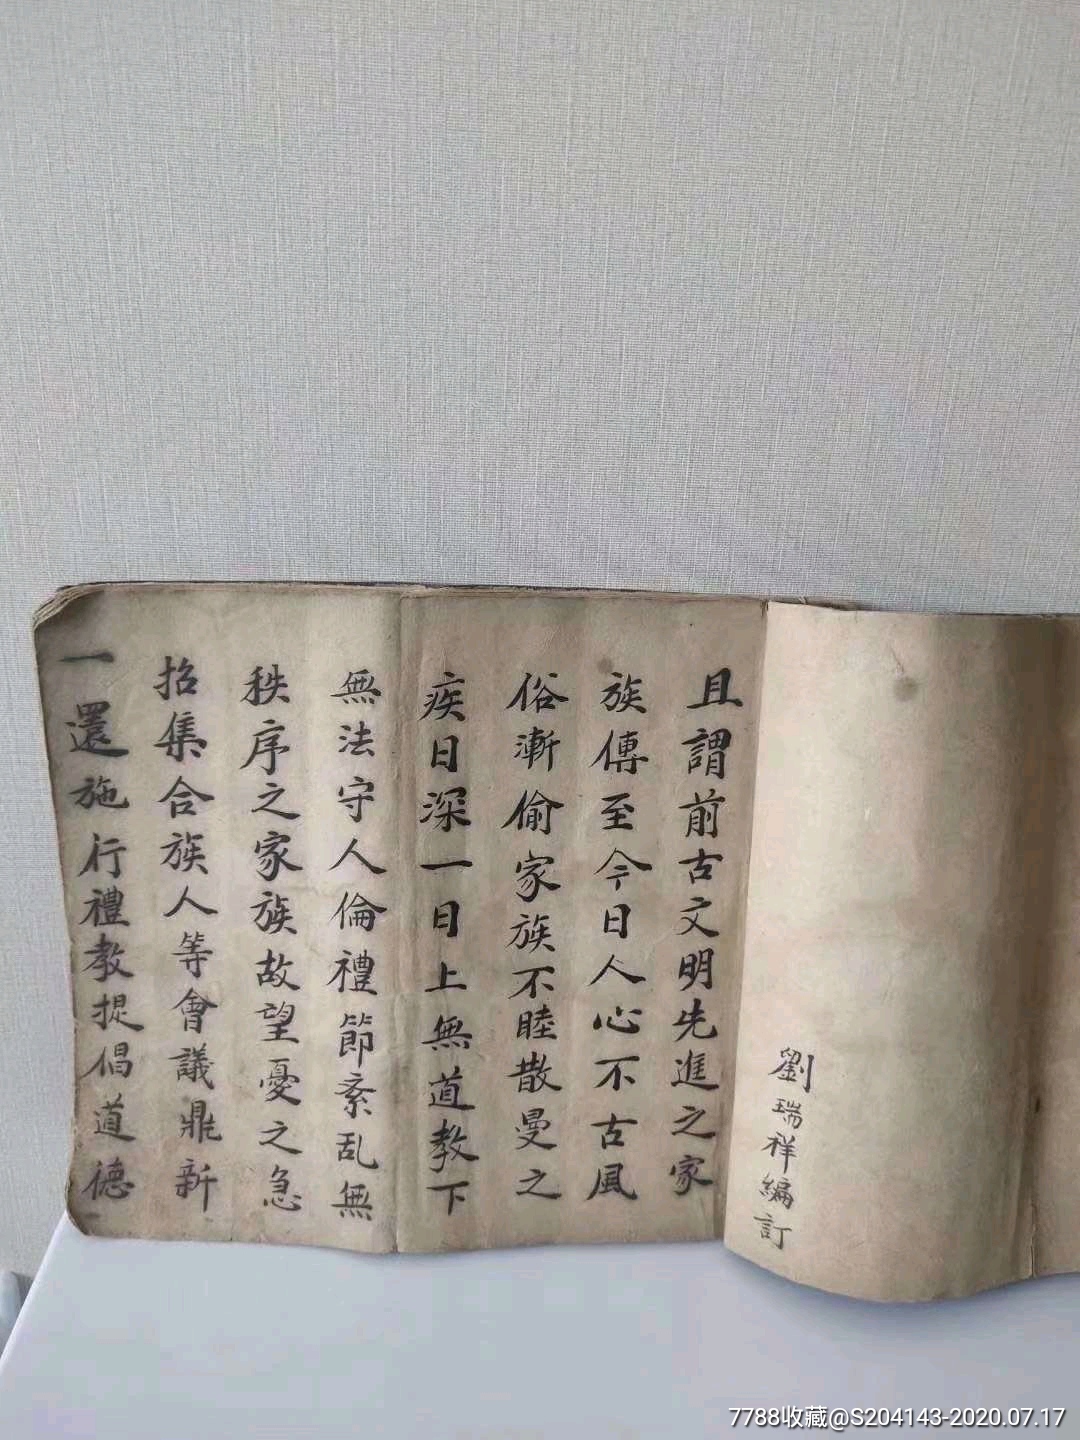 劉瑞祥編訂
且謂前古文明先進之家
族傳至今日人心不古風
俗漸偷家族不睦散曼之
疾日深一日上無道教下
無法守人倫禮節紊乱無
秩序之家族故望憂之急
招集合族人等會議鼎新
一還施行禮教提倡道德
7788收藏@S204143-2020.07.17